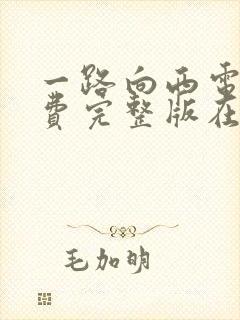 一路向西电
费完整版在
毛加明